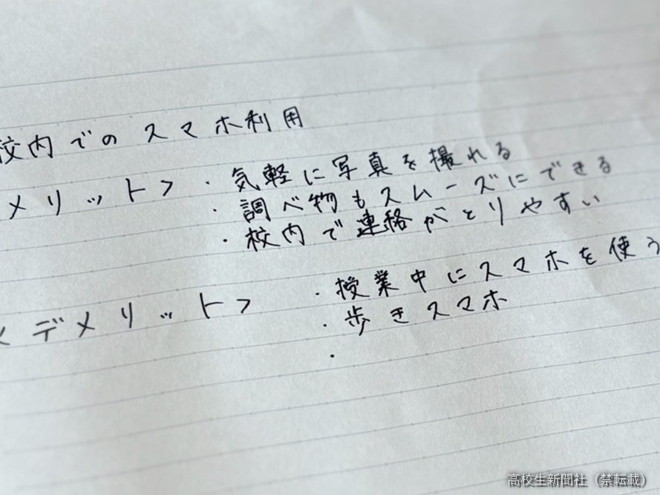 校内でのスマホ利用
メリット> ・気軽に写真を撮れる
・調べ物もスムーズにできる
・校内で連絡がとりやすい
<デメリット> ・授業中にスマホを使う
・歩きスマホ
・
高校生新聞社（禁転載）